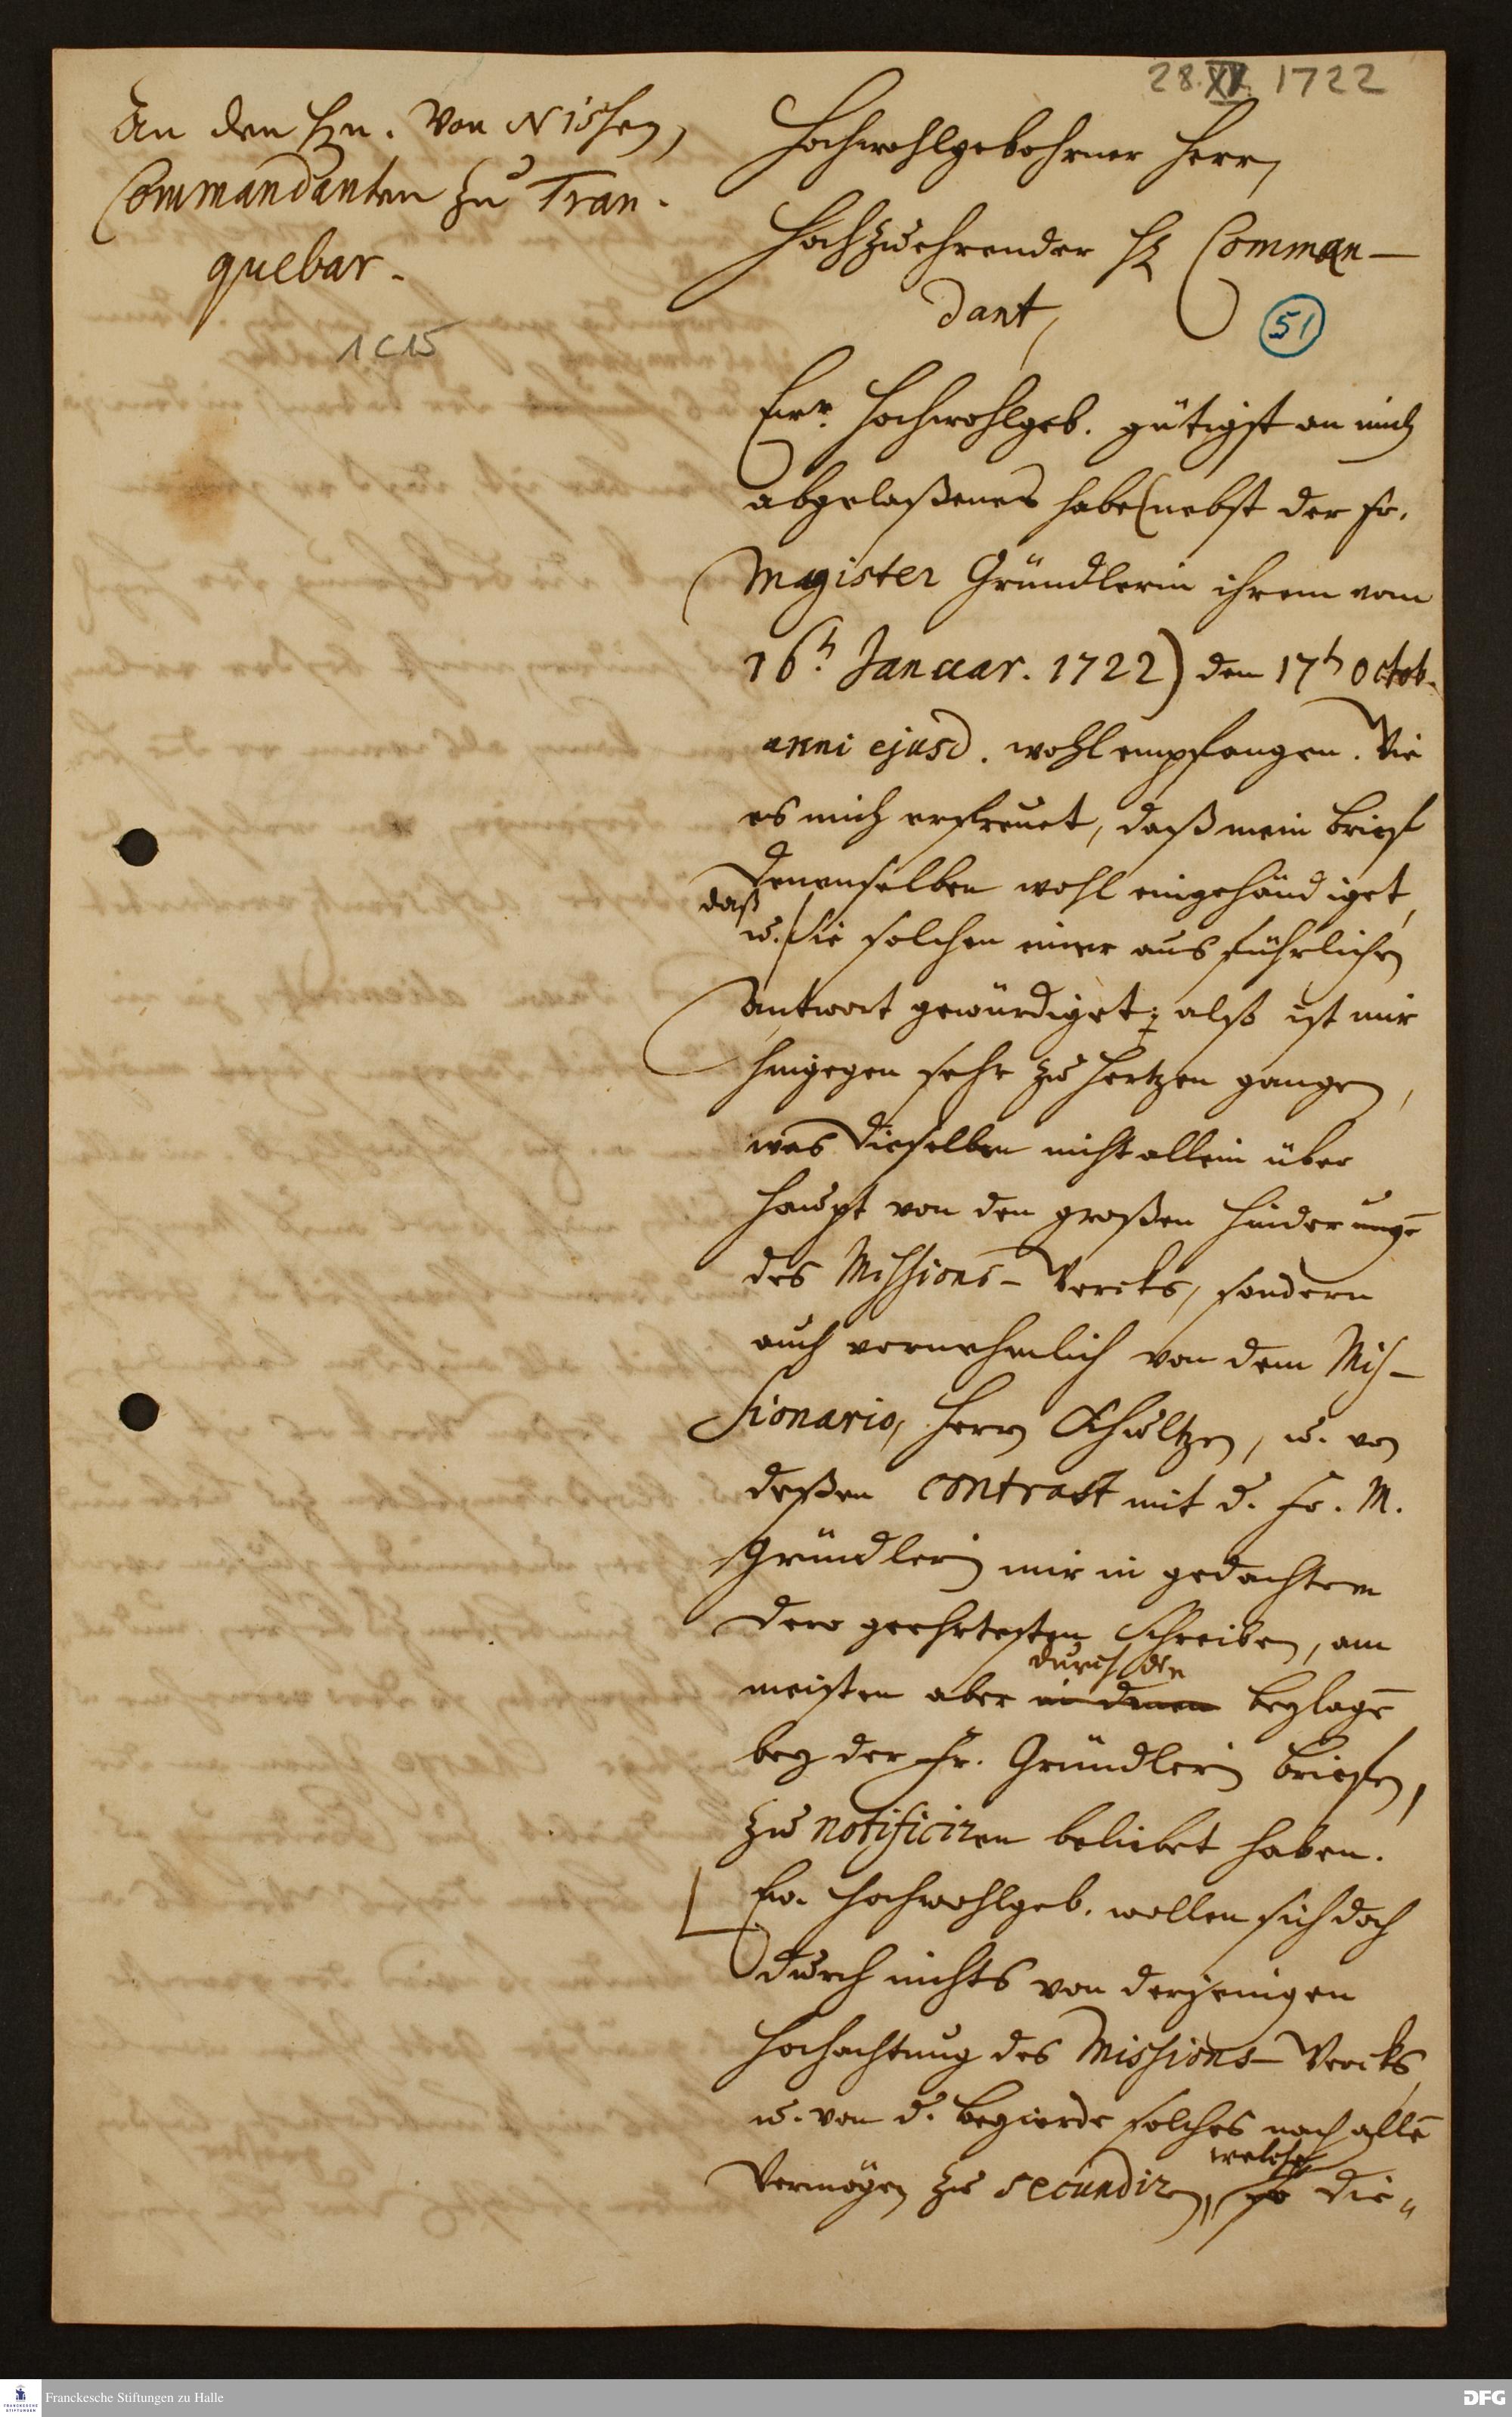 28. XII. 1722
An den Hn. von Nissen,
Commandanten zu Tran-
quebar.
1 C 15
Hochwohlgebohrner Herr,
Hochzuehrender H Comman-
dant,
51
Ewr. Hochwohlgeb. gütigst an mich
abgelaßenes habe (nebst der Fr.
Magister Gründlerin ihrem vom
16t. Januar. 1722) den 17t Octob.
anni ejusd. wohl empfangen. Wie
es mich erfreuet, daß mein Brief
Denenselben wohl eingehändiget,
daß
u. Sie solchen einer ausführlichen
Antwort gewürdiget; alß ist mir
hingegen sehr zu Hertzen gangen,
was Dieselben nicht allein über
haupt von den großen Hinderungē
des Missions-Wercks, sondern
auch vornehmlich von dem Mis-
sionario, Herrn Schultzen, u. von
deßen contract mit d. Fr. M.
Gründlerin mir in gedachtem
Dero geehrtesten Schreiben, am
durch die
meisten aber in denen Beylagē
bey der Fr. Gründlerin Briefen,
zu notificiren beliebet haben.
Ew. Hochwohlgeb. wollen sich doch
durch nichts von derjenigen
Hochachtung des Missions-Wercks,
u. von d. Begierde solches nach allē
welche
Vermögen zu secundiren, so Die-
Franckesche Stiftungen zu Halle
DFG